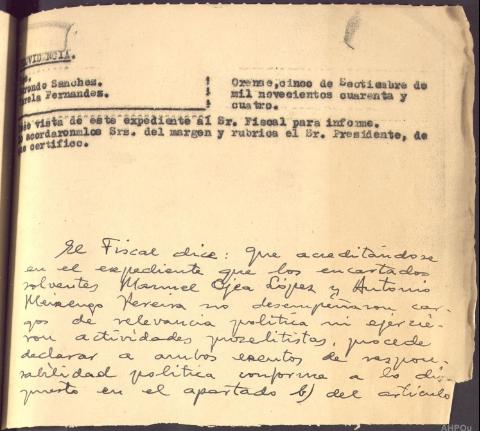 VIDENCIA.
rondo Sanchez.
rela Fernandez.
Orense,cinco de Septiembre de
mil novecientos cuarenta y
cuatro.
vista de este expediente al Sr. Fiscal para informe.
acordaronmlos Srs. del margen y rubrica el Sr. Presidente, de
certifico.
El Fiscal dice: que acreditándose
en el expediente que los encartados
solventes Manuel Ojea López y Antonio
Pereira no desempeñaron car-
gos de relevancia política ni ejercie-
ron actividades proselitistas, procede
declarar a ambos exentos de respon-
sabilidad política conforme a lo dis-
puesto en el apartado b) del artículo
AHPOu